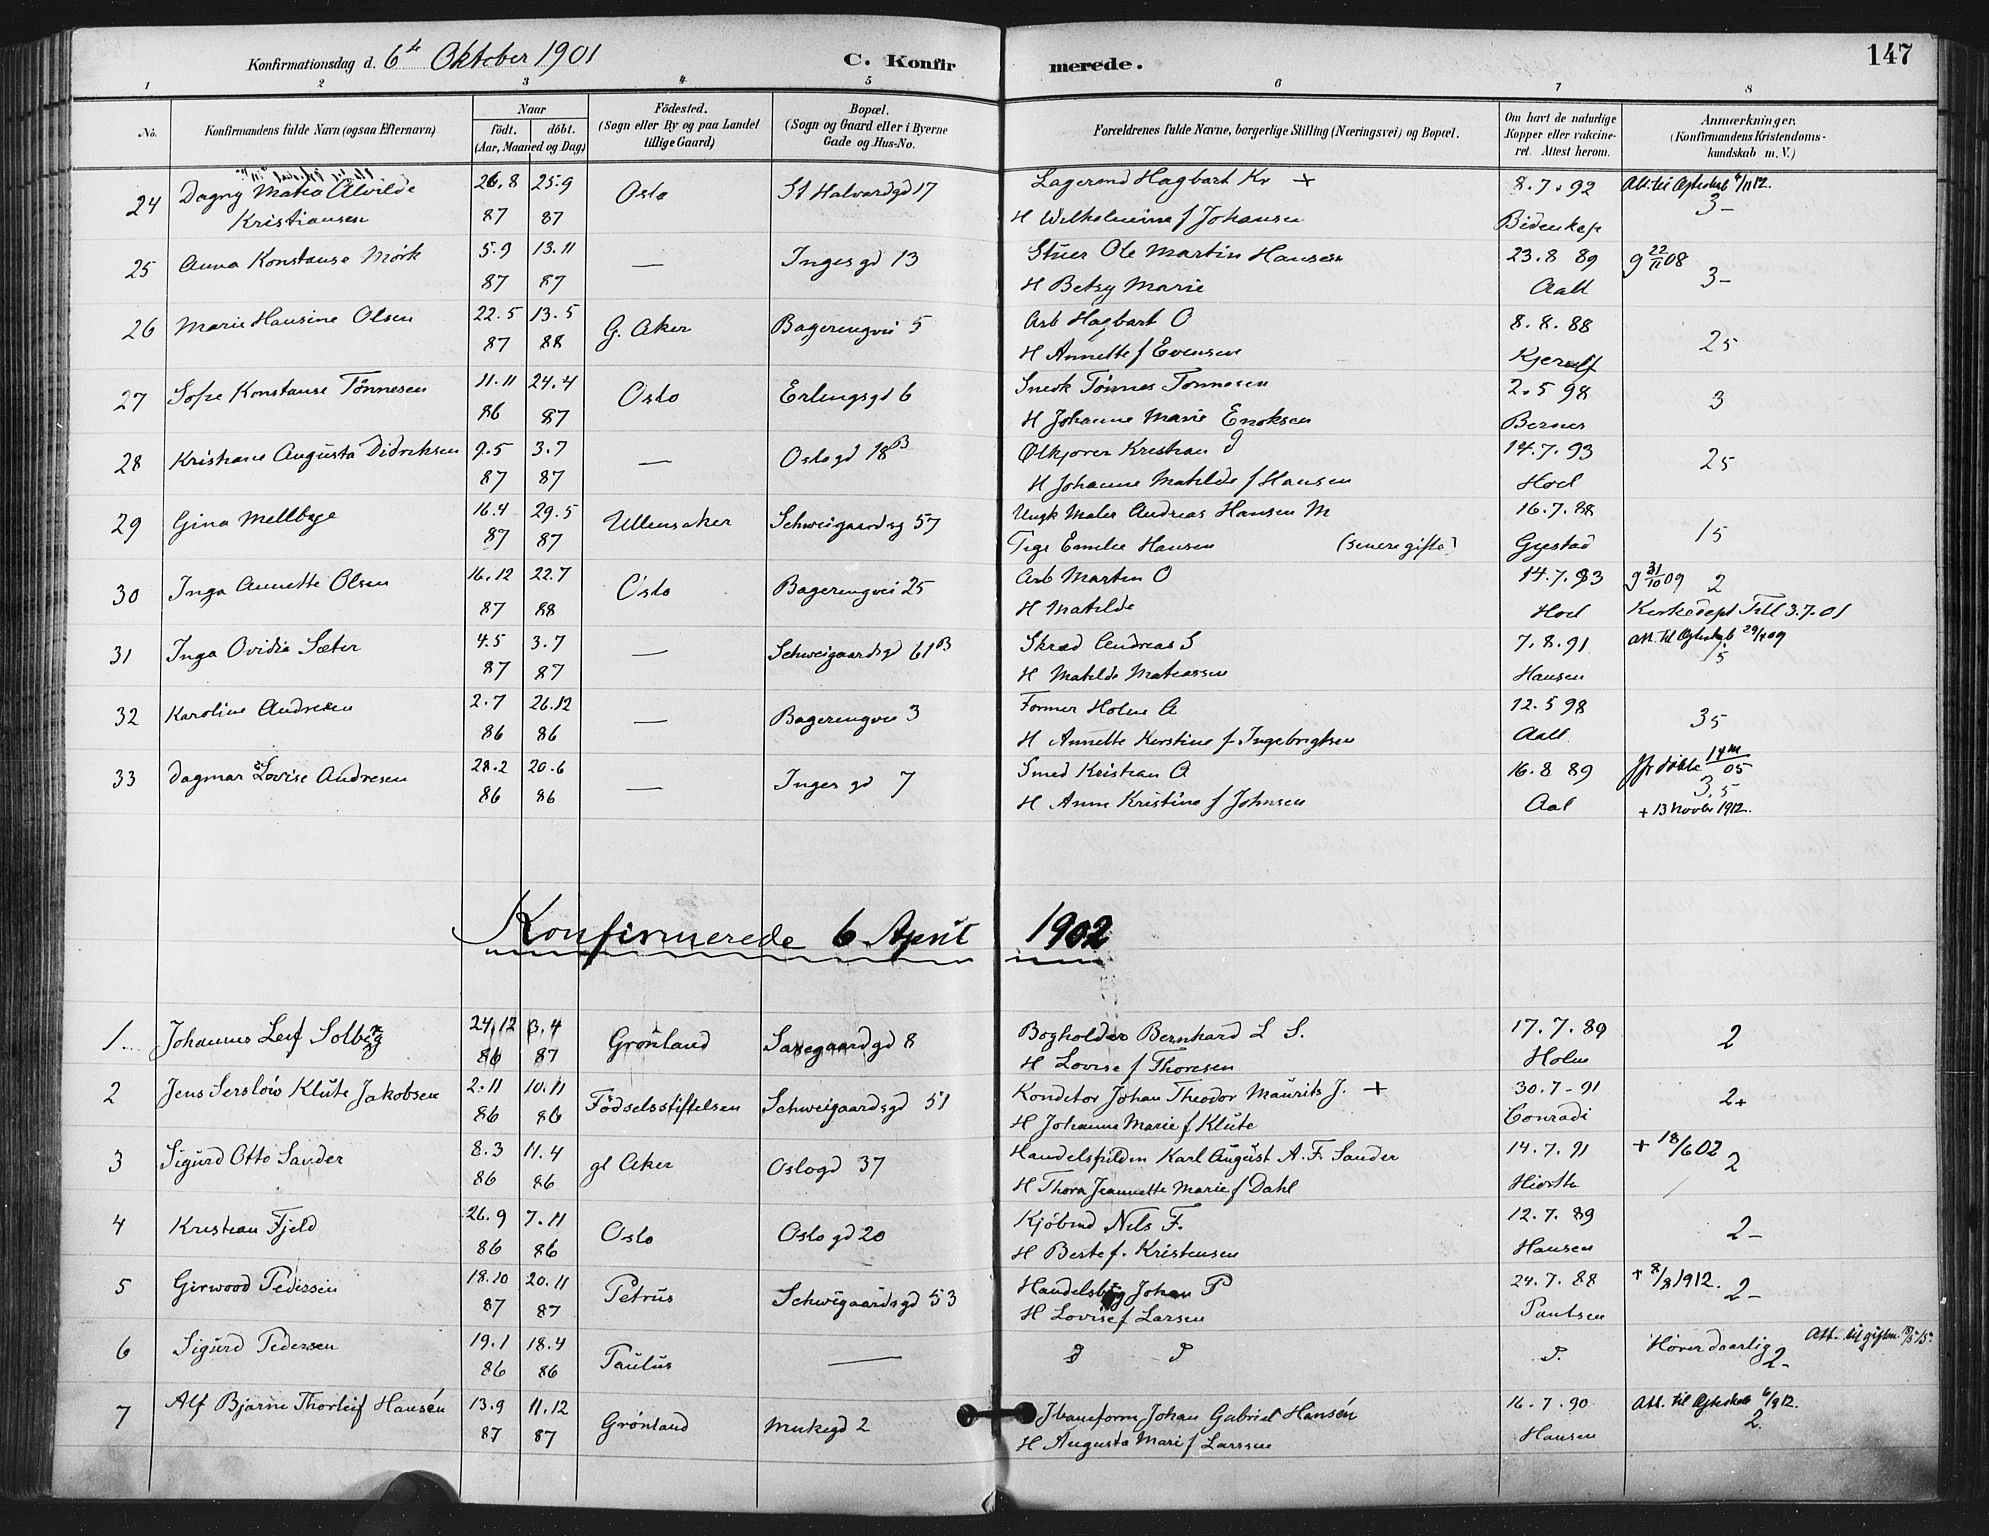 Konfirmationsdag d. 6te Oktober 1901 C. Konfir merede. 147
1 2 3 4 5 6 7 8
No. Konfirmandens fulde Navn (ogsaa Efternavn) Naar födt. döbt. (Aar, Maaned og Dag) Födested. (Sogn eller By og paa Landet tillige Gaard) Bopæl. (Sogn og Gaard eller i Byerne Gade og Hus-No. Forældrenes fulde Navne, borgerlige Stilling (Næringsvei) og Bopæl. Om havt de naturlige Kopper eller vakcineret. Attest herom. Anmærkninger. (Konfirmandens Kristendomskundskab m. V.)
24 Dagny Matea Alvilde 26.8 25.9 Oslo St Halvardgd 17 Lagermd Hagbart Kr + 8.7.92 Att. til Ægteskab 6/11 12.
Kristiansen 87 87 H Wilhelmine f Johansen Bidenkap 3-
25 Anna Konstanse Mörk 5.9 13.11 — Inges gd 13 Stuer Ole Martin Hansen 23.8 89 g 22/11 08
87 87 H Betsy Marie Aall 3-
26 Marie Hansine Olsen 22.5 13.5 G. Aker Bagerengvei 5 Arb Hagbart O 8.8.88 25
87 88 H Annette f Evensen Kjerulf
27 Sofie Konstanse Tönnesen 11.11 24.4 Oslo Erlingsgd 6 Snedk Tönnes Tonnesen 2.5 98 3
86 87 H Johanne Marie Enoksen Berner
28 Kristiane Augusta Didriksen 9.5 3.7 — Oslogd 18B Ölkjorer Kristian D 14.7.93 25
87 87 H Johanne Matilde f Hansen Hoel
29 Gina Mellbye 16.4 29.5 Ullensaker Schweigaardsg 57 Ungk Maler Andreas Hansen M 16.7.88 15
87 87 Pige Emilie Hansen (senere gifte) Gjestad
30 Inga Annette Olsen 16.12 22.7 Oslo Bagerengvei 25 Arb Martin O 14.7.93 g 31/10 09 2
87 88 H Matilde Hoel Kirkedept Till 3.7.01
31 Inga Ovidia Sæter 4.5 3.7 — Schweigaardsgd 61B Skræd Andreas S 7.8.91 Att. til Ægteskab 29/4 09
87 87 H Matilde Mateassen Hansen 15
32 Karoline Andresen 2.7 26.12 — Bagerengvei 3 Former Holm A 12.5 98 35
86 86 H Annette Kirstine f Ingebrigtsen Aall
33 Dagmar Lovise Andresen 28.2 20.6 — Inges gd 7 Smed Kristian A 16.8 89 05
86 86 H Anne Kristine f Johnsen Aal 3,5
+ 13 Novbr 1912.
Konfirmerede 6 April 1902
1 Johannes Leif Solberg 24.12 3.4 Grönland Saxegaardgd 8 Bogholder Bernhard L S. 17.7.89 2
86 87 H Lovise f Thoresen Holm
2 Jens Serslöw Klute Jakobsen 2.11 10.11 Födselsstiftelsen Schweigaardsgd 51 Konditor Johan Theodor Maurits J. + 30.7-91 2+
86 86 H Johanne Marie f Klute Conradi
3 Sigurd Otto Sander 8.3 11.4 gl Aker Oslogd 37 Handelsfuldm Karl August A. F. Sander 14.7.91 + 18/6 02
86 86 H Thora Jeannette Marie f Dahl Hiorth 2
4 Kristian Fjeld 26.9 7.11 Oslo Oslo gd 20 Kjöbmd Nils F. 12.7.89 2-
86 86 H Berte f. Kristensen Hansen
5 Girwood Pedersen 18.10 20.11 Petrus Schweigaardsgd 53 Johan P 24.7.88 + 8/8 1912.
87 87 H Lovise f Larsen Paulsen 2-
6 Sigurd Pedersen 19.1 18.4 Paulus — D D D. Hörer daarlig Att. til giftm.
86 86 2-
7 Alf Bjarne Thorleif Hansén 13.9 11.12 Grönland Munkegd 2 Johan Gabriel Hansén 16.7.90 Att. til Ægteskab 6/9 12.
87 87 H Augusta Mari f Larssen Hansen 2.